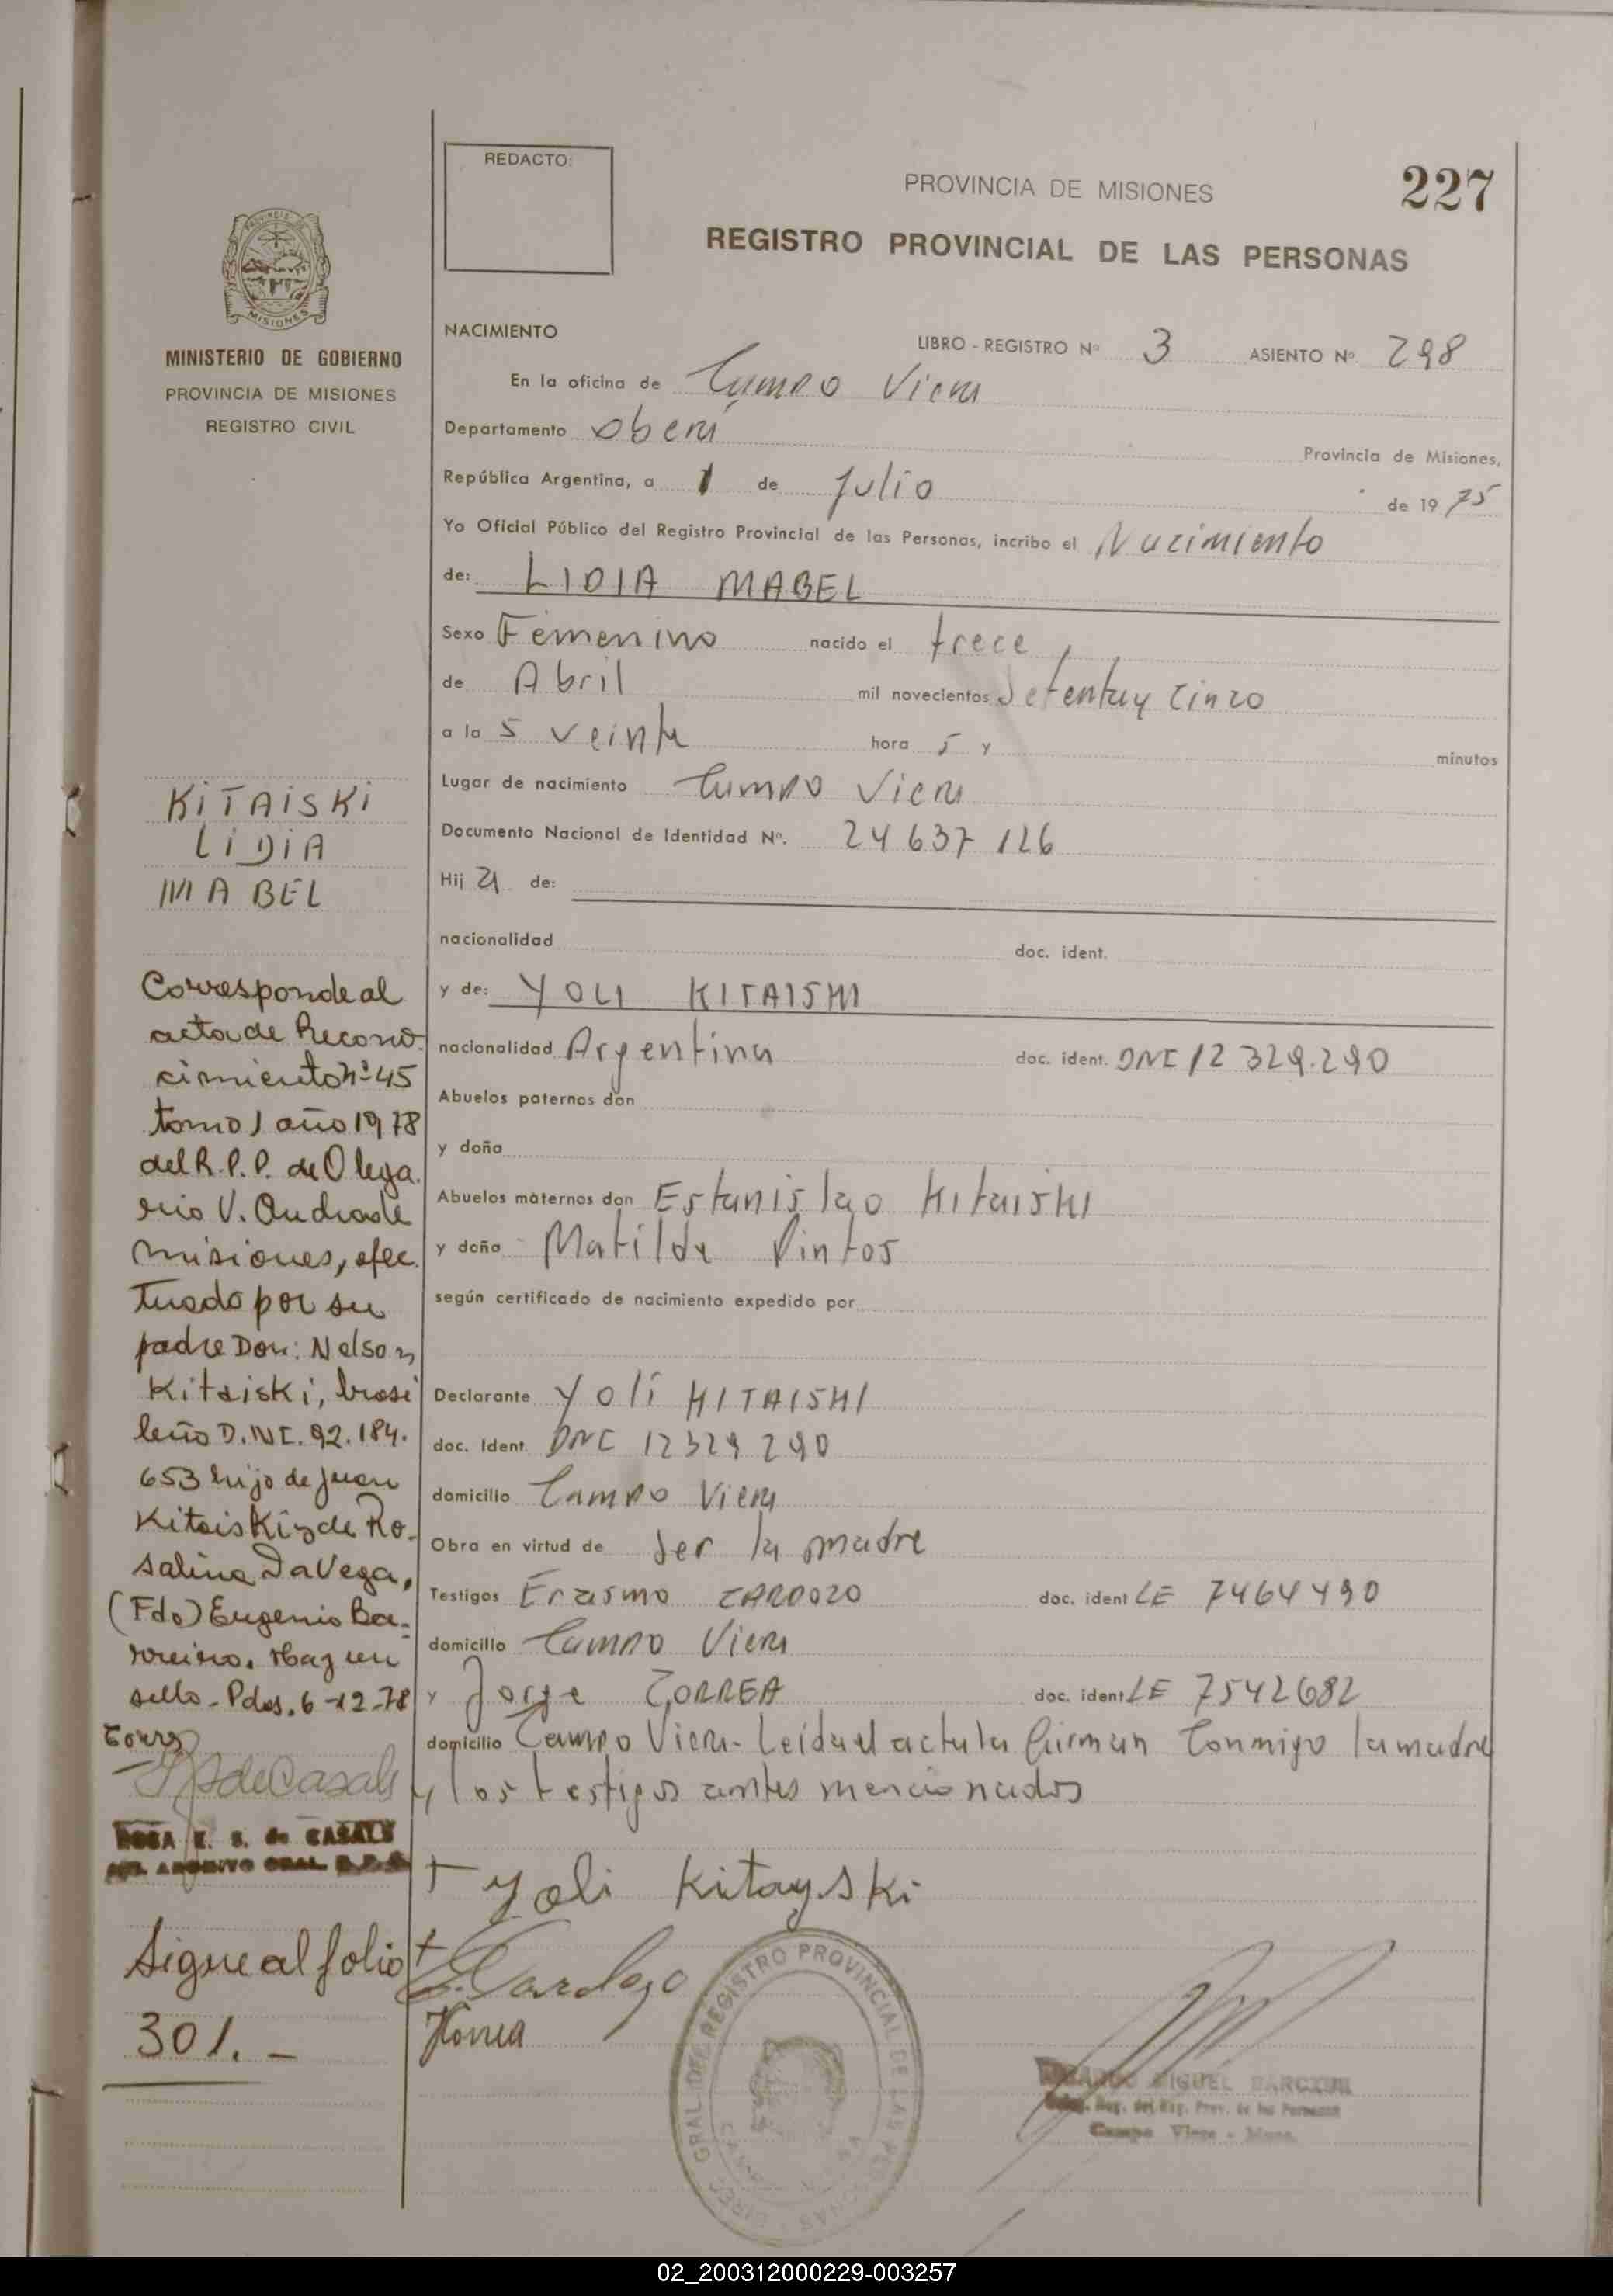 REDACTO:
PROVINCIA DE MISIONES
227
REGISTRO PROVINCIAL DE LAS PERSONAS
MISIONES
MINISTERIO DE GOBIERNO
PROVINCIA DE MISIONES
REGISTRO CIVIL
NACIMIENTO
LIBRO - REGISTRO Nº 3 ASIENTO Nº. 298
En la oficina de Campo Viera
Departamento Oberá
Provincia de Misiones,
República Argentina, a 1 de Julio de 1975
Yo Oficial Público del Registro Provincial de las Personas, incribo el Nacimiento
de: LIDIA MABEL
Sexo Femenino nacido el trece
de Abril mil novecientos Setenta y Cinco
a la s veinte hora s y minutos
Lugar de nacimiento Campo Viera
Documento Nacional de Identidad Nº. 24 637 126
Hij a de:
nacionalidad doc. ident.
y de: YOLI KITAISKI
nacionalidad Argentina doc. ident. DNI 12 329.290
Abuelos paternos don
y doña
Abuelos maternos don Estanislao Kitaiski
y doña Matilda Pintos
según certificado de nacimiento expedido por
Declarante Yoli KITAISKI
doc. Ident. DNI 12329 290
domicilio Campo Viera
Obra en virtud de Ser la madre
Testigos Erasmo CARDOZO doc. ident LE 7464490
domicilio Campo Viera
y Jorge CORREA doc. ident LE 7542682
domicilio Campo Viera- Leída el acta la firman Conmigo la madre
y los testigos antes mencionados
+ yoli kitayski
+ E. Cardozo
JCorrea
KITAISKI
LIDIA
MABEL
Corresponde al
acta de Recono-
cimiento nº 45
tomo 1 año 1978
del R.P.P. de Olega-
rio V. Andrade
Misiones, efec-
tuado por su
padre Don: Nelson
Kitaiski, brasi
leño D.NI. 92.184.
653 hijo de Juan
Kitaiski y de Ro-
salina Da Vega,
(Fdo) Eugenio Ba-
rreiro. Hay un
sello - Pdas. 6-12-78
ROSA E. S. de CASALS
Sigue al folio
301.-
GRAL. DEL REGISTRO PROVINCIAL DE LAS PERSONAS
MIGUEL
Reg. del Reg. Prov. de las Personas
Campo Viera - Mnes.
02_200312000229-003257